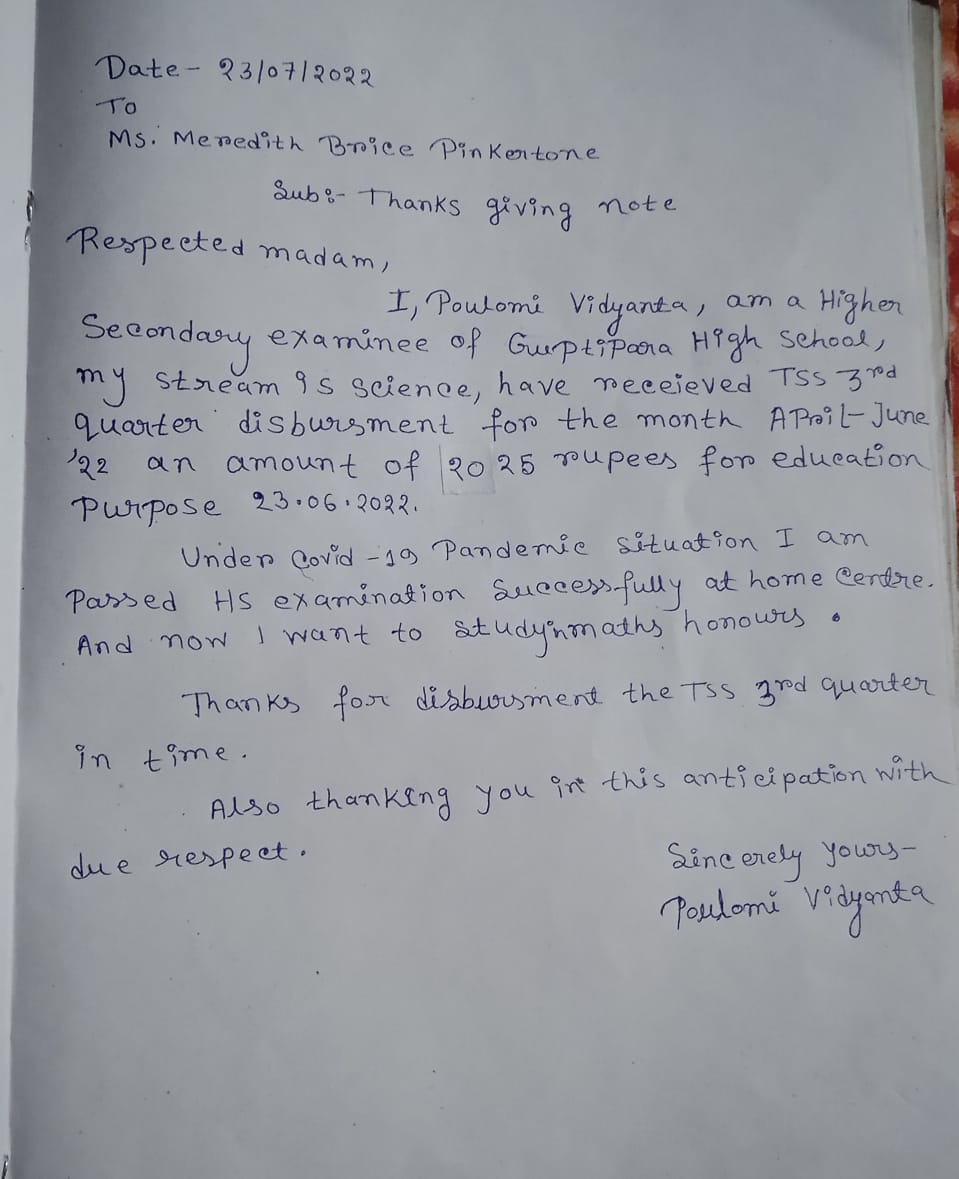 Date - 23/07/2022
To
Ms. Meredith Brice Pinkertone
Sub:- Thanks giving note
Respected madam,
I, Poulomi Vidyanta, am a Higher
Secondary examinee of Guptipara High School,
my stream is science, have receieved TSS 3rd
quarter disbursment for the month April-June
'22 an amount of 2025 rupees for education
purpose 23.06.2022.
Under Covid-19 Pandemic situation I am
Passed HS examination Successfully at home Centre.
And now I want to study in maths honours.
Thanks for disbursment the TSS 3rd quarter
in time.
Also thanking you in this anticipation with
due respect.
Sincerely yours-
Poulomi Vidyanta